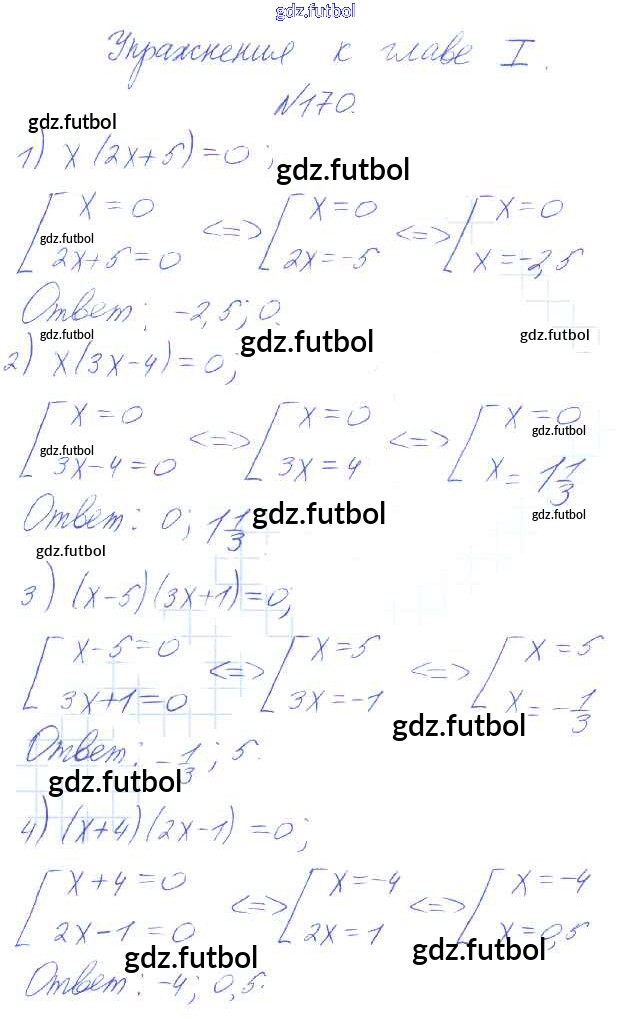 gdz.futbol
Упражнения к главе I.
№170.
gdz.futbol
1) x(2x+5)=0;
gdz.futbol
[x=0 <=> [x=0 <=> [x=0
gdz.futbol
2x+5=0 2x=-5 x=-2,5
Ответ: -2,5; 0.
gdz.futbol gdz.futbol gdz.futbol
2) x(3x-4)=0;
[x=0 <=> [x=0 <=> [x=0
gdz.futbol gdz.futbol
3x-4=0 3x=4 x=1 1/3
Ответ: 0; 1 1/3.
gdz.futbol gdz.futbol
gdz.futbol
3) (x-5)(3x+1)=0;
[x-5=0 <=> [x=5 <=> [x=5
3x+1=0 3x=-1 x=-1/3
gdz.futbol
Ответ: -1/3; 5.
gdz.futbol
4) (x+4)(2x-1)=0;
[x+4=0 <=> [x=-4 <=> [x=-4
2x-1=0 2x=1 x=0,5
gdz.futbol gdz.futbol
Ответ: -4; 0,5.